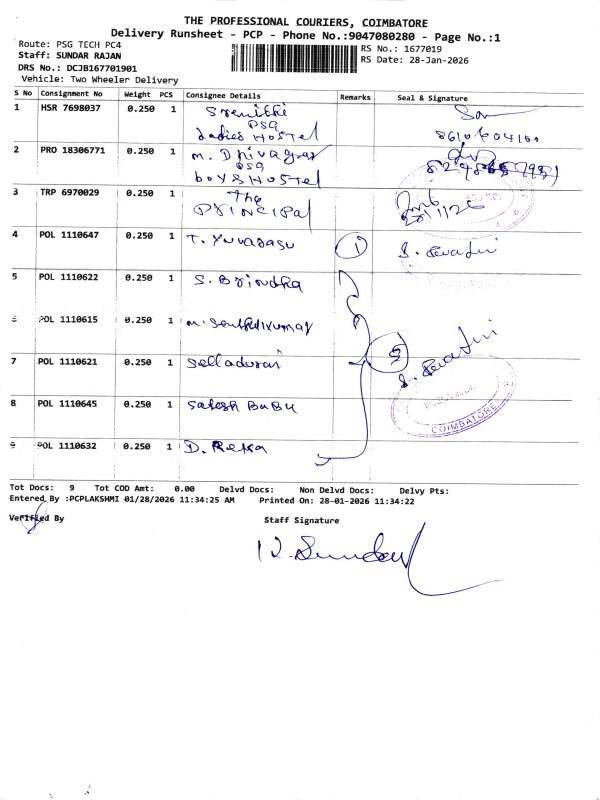 THE PROFESSIONAL COURIERS, COIMBATORE
Delivery Runsheet - PCP - Phone No.:9047080280 - Page No.:1
Route: PSG TECH PC4
RS No.: 1677019
Staff: SUNDAR RAJAN
RS Date: 28-Jan-2026
DRS No.: DCJB167701901
Vehicle: Two Wheeler Delivery
S No Consignment No Weight PCS Consignee Details Remarks Seal & Signature
1 HSR 7698037 0.250 1 Srenithi
PSG
Ladies Hostel
2 PRO 18306771 0.250 1 M. Dhivagar
PSG
boys Hostel
3 TRP 6970029 0.250 1 The
Principal
4 POL 1110647 0.250 1 T. Yuvarasu 1 S. Revathi
5 POL 1110622 0.250 1 S. Brindha
6 POL 1110615 0.250 1 M. Senthilkumar
7 POL 1110621 0.250 1 Selladurai 5 S. Revathi
8 POL 1110645 0.250 1 Satesh Babu
COIMBATORE
9 POL 1110632 0.250 1 D. Rekha
Tot Docs: 9 Tot COD Amt: 0.00 Delvd Docs: Non Delvd Docs: Delvy Pts:
Entered By :PCPLAKSHMI 01/28/2026 11:34:25 AM Printed On: 28-01-2026 11:34:22
Verified By Staff Signature
K. Sundar